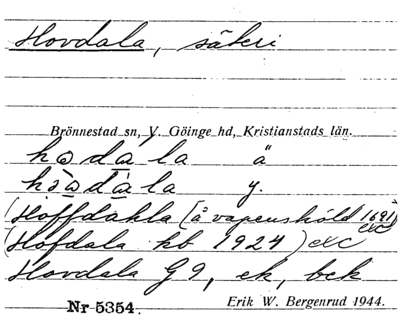 Hovdala, säteri
Brönnestad sn, V. Göinge hd, Kristianstads län.
hɔdala ä
hɔ̀dàla y.
(Höffdåhla [å vapensköld 1691) etc
(Hofdala kb 1924) etc
Hovdala G9, ek, bek
Nr 5354. Erik W. Bergenrud 1944.